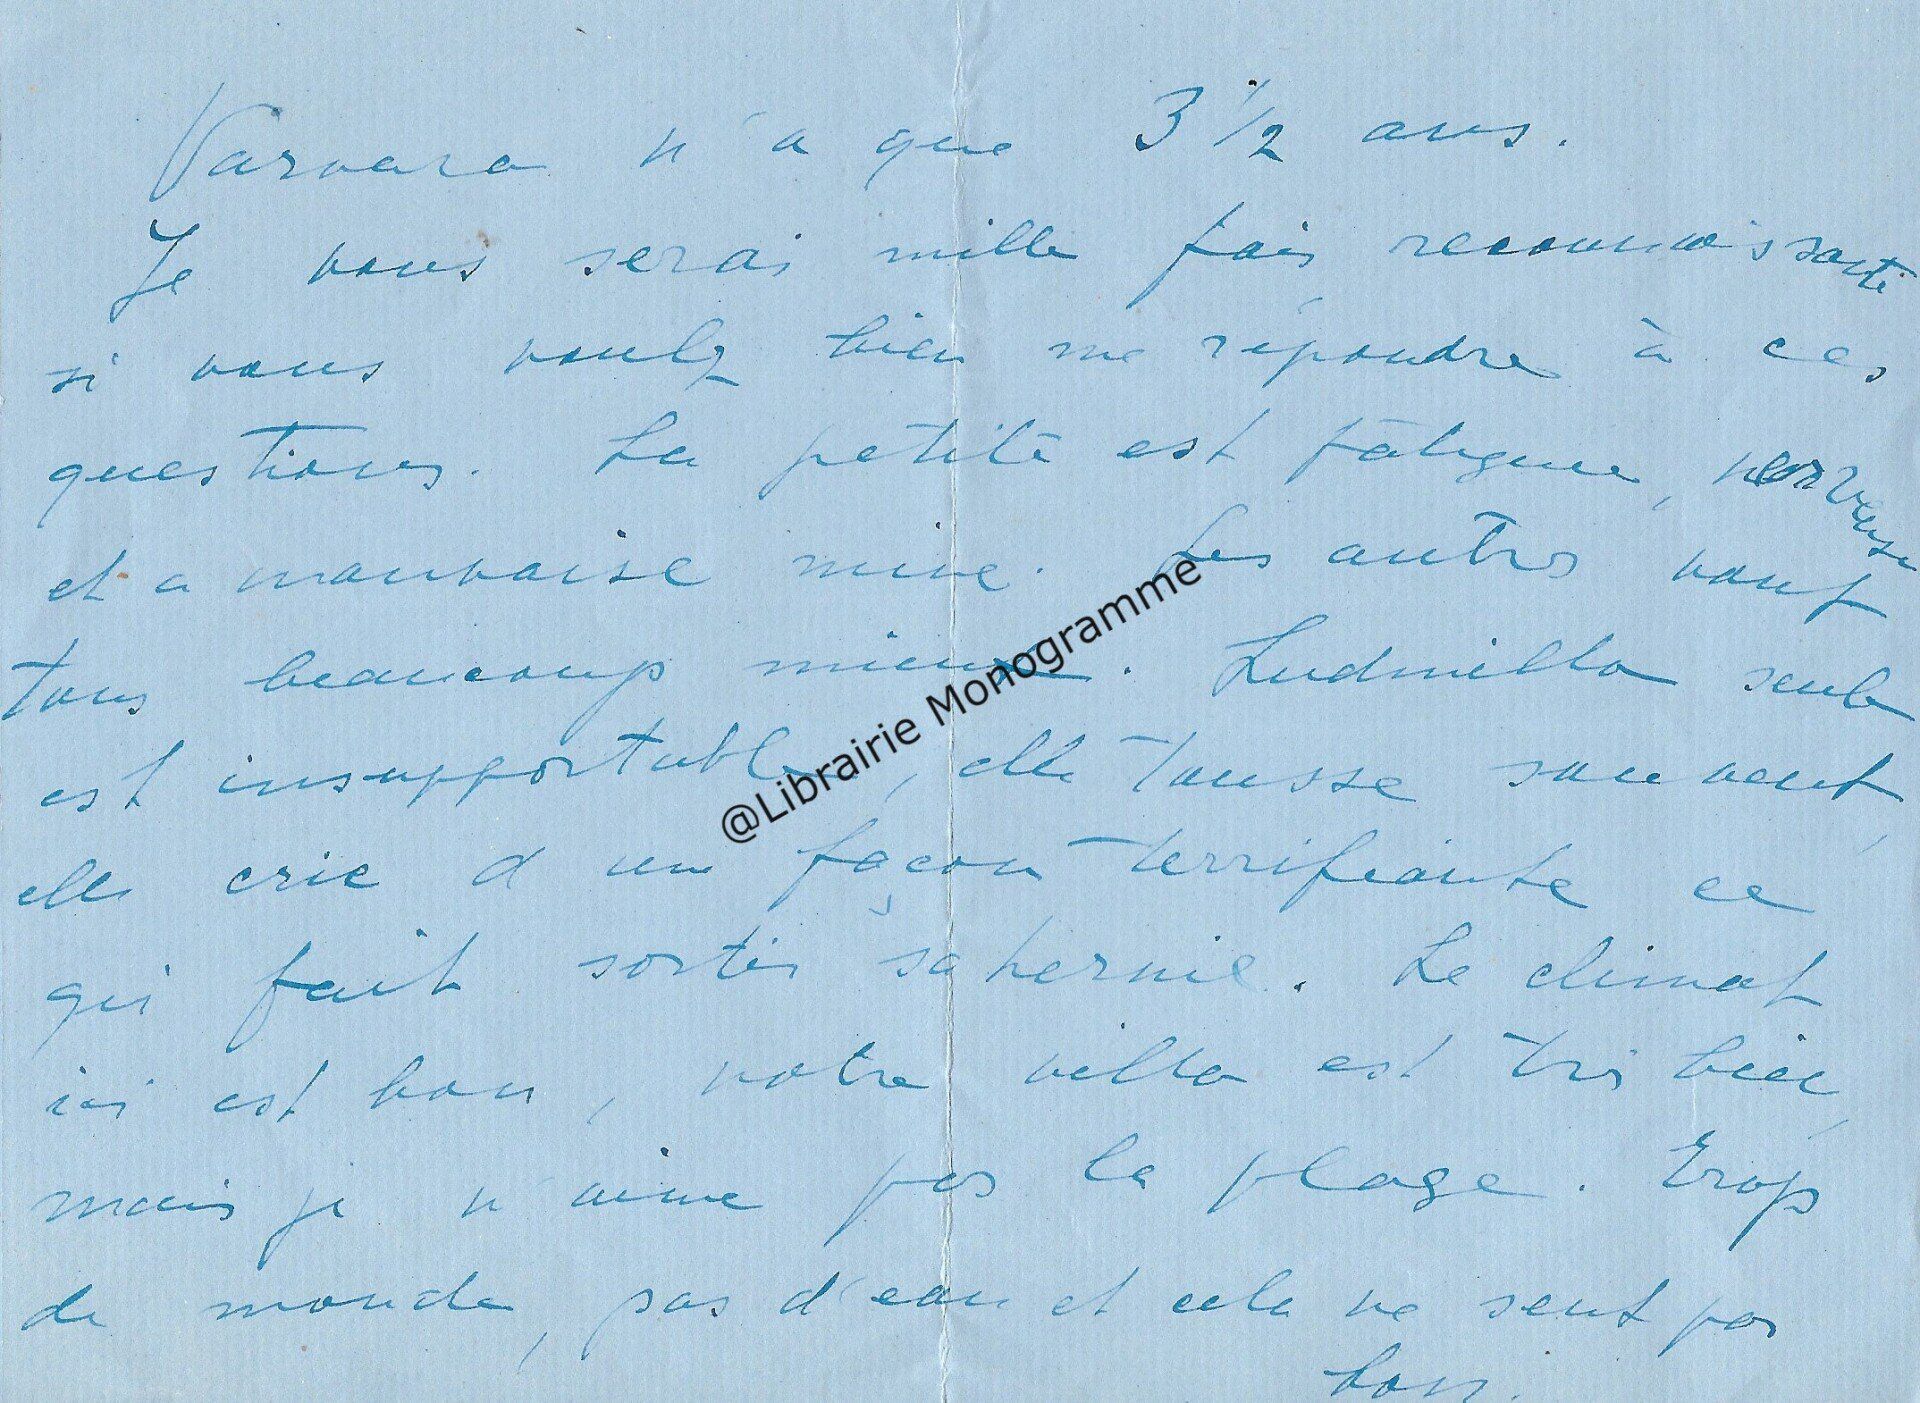 Varvara n'a que 3 1/2 ans.
Je vous serai mille fois reconnaissante
si vous voulez bien me répondre à ces
questions. La petite est fatiguée, nerveuse
et a mauvaise mine. Les autres vont
tous beaucoup mieux. Ludmilla seule
est insupportable, elle tousse souvent,
elle crie d'un façon terrifiante ce
qui fait sortir sa hernie. Le climat
ici est bon, notre villa est très bien,
mais je n'aime pas la plage. Trop
de monde, pas d'eau et cela ne sent pas
bon.
@Librairie Monogramme